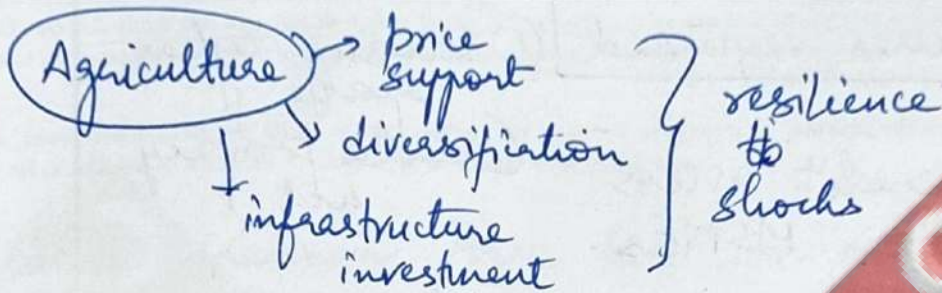 Agriculture → price
support
→ diversification
→ infrastructure
investment
resilience
to
shocks